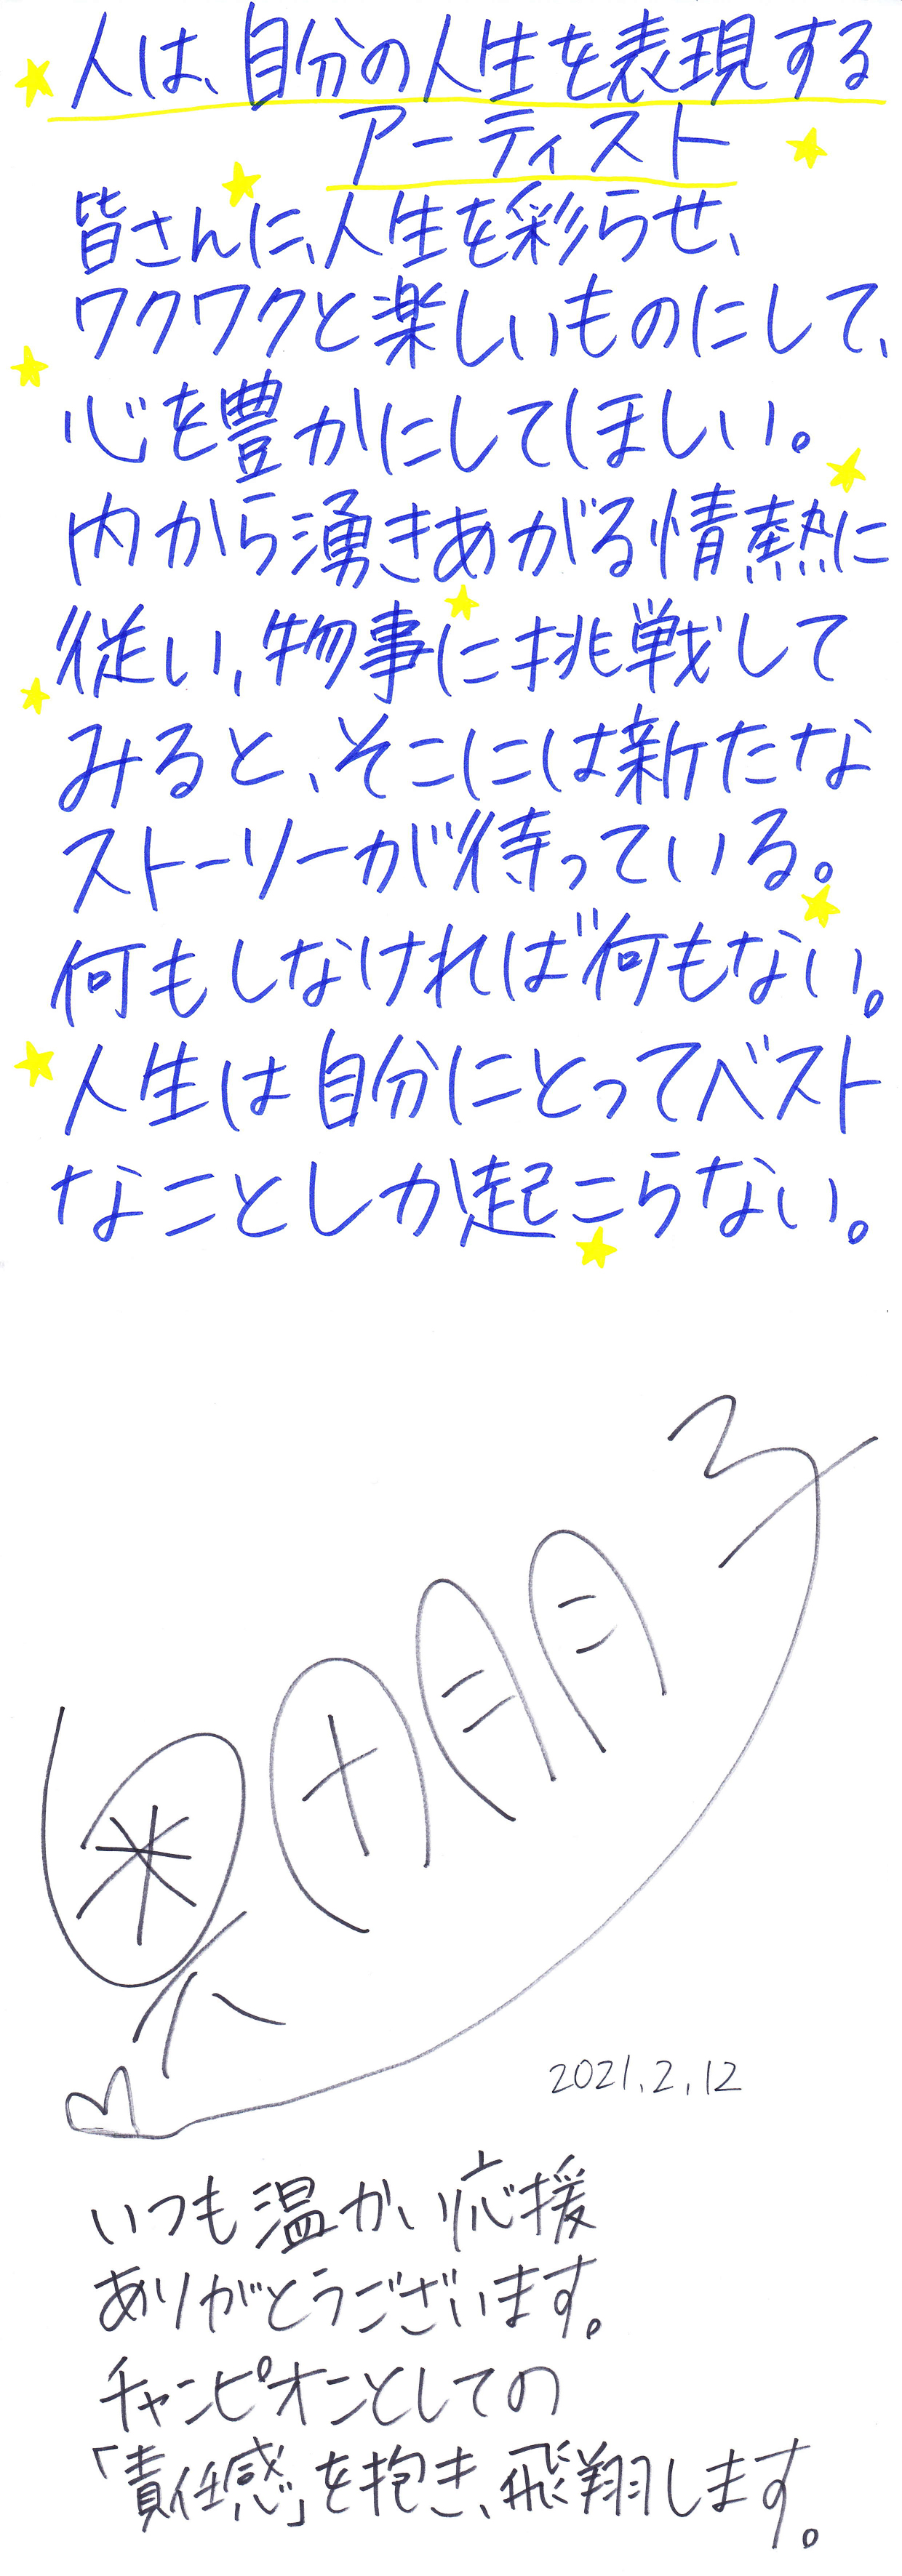 人は、自分の人生を表現する
アーティスト
皆さんに、人生を彩らせ、
ワクワクと楽しいものにして、
心を豊かにしてほしい。
内から湧きあがる情熱に
従い、物事に挑戦して
みると、そこには新たな
ストーリーが待っている。
何もしなければ何もない。
人生は自分にとってベスト
なことしか起こらない。
2021.2.12
いつも温かい応援
ありがとうございます。
チャンピオンとしての
「責任感」を抱き、飛翔します。